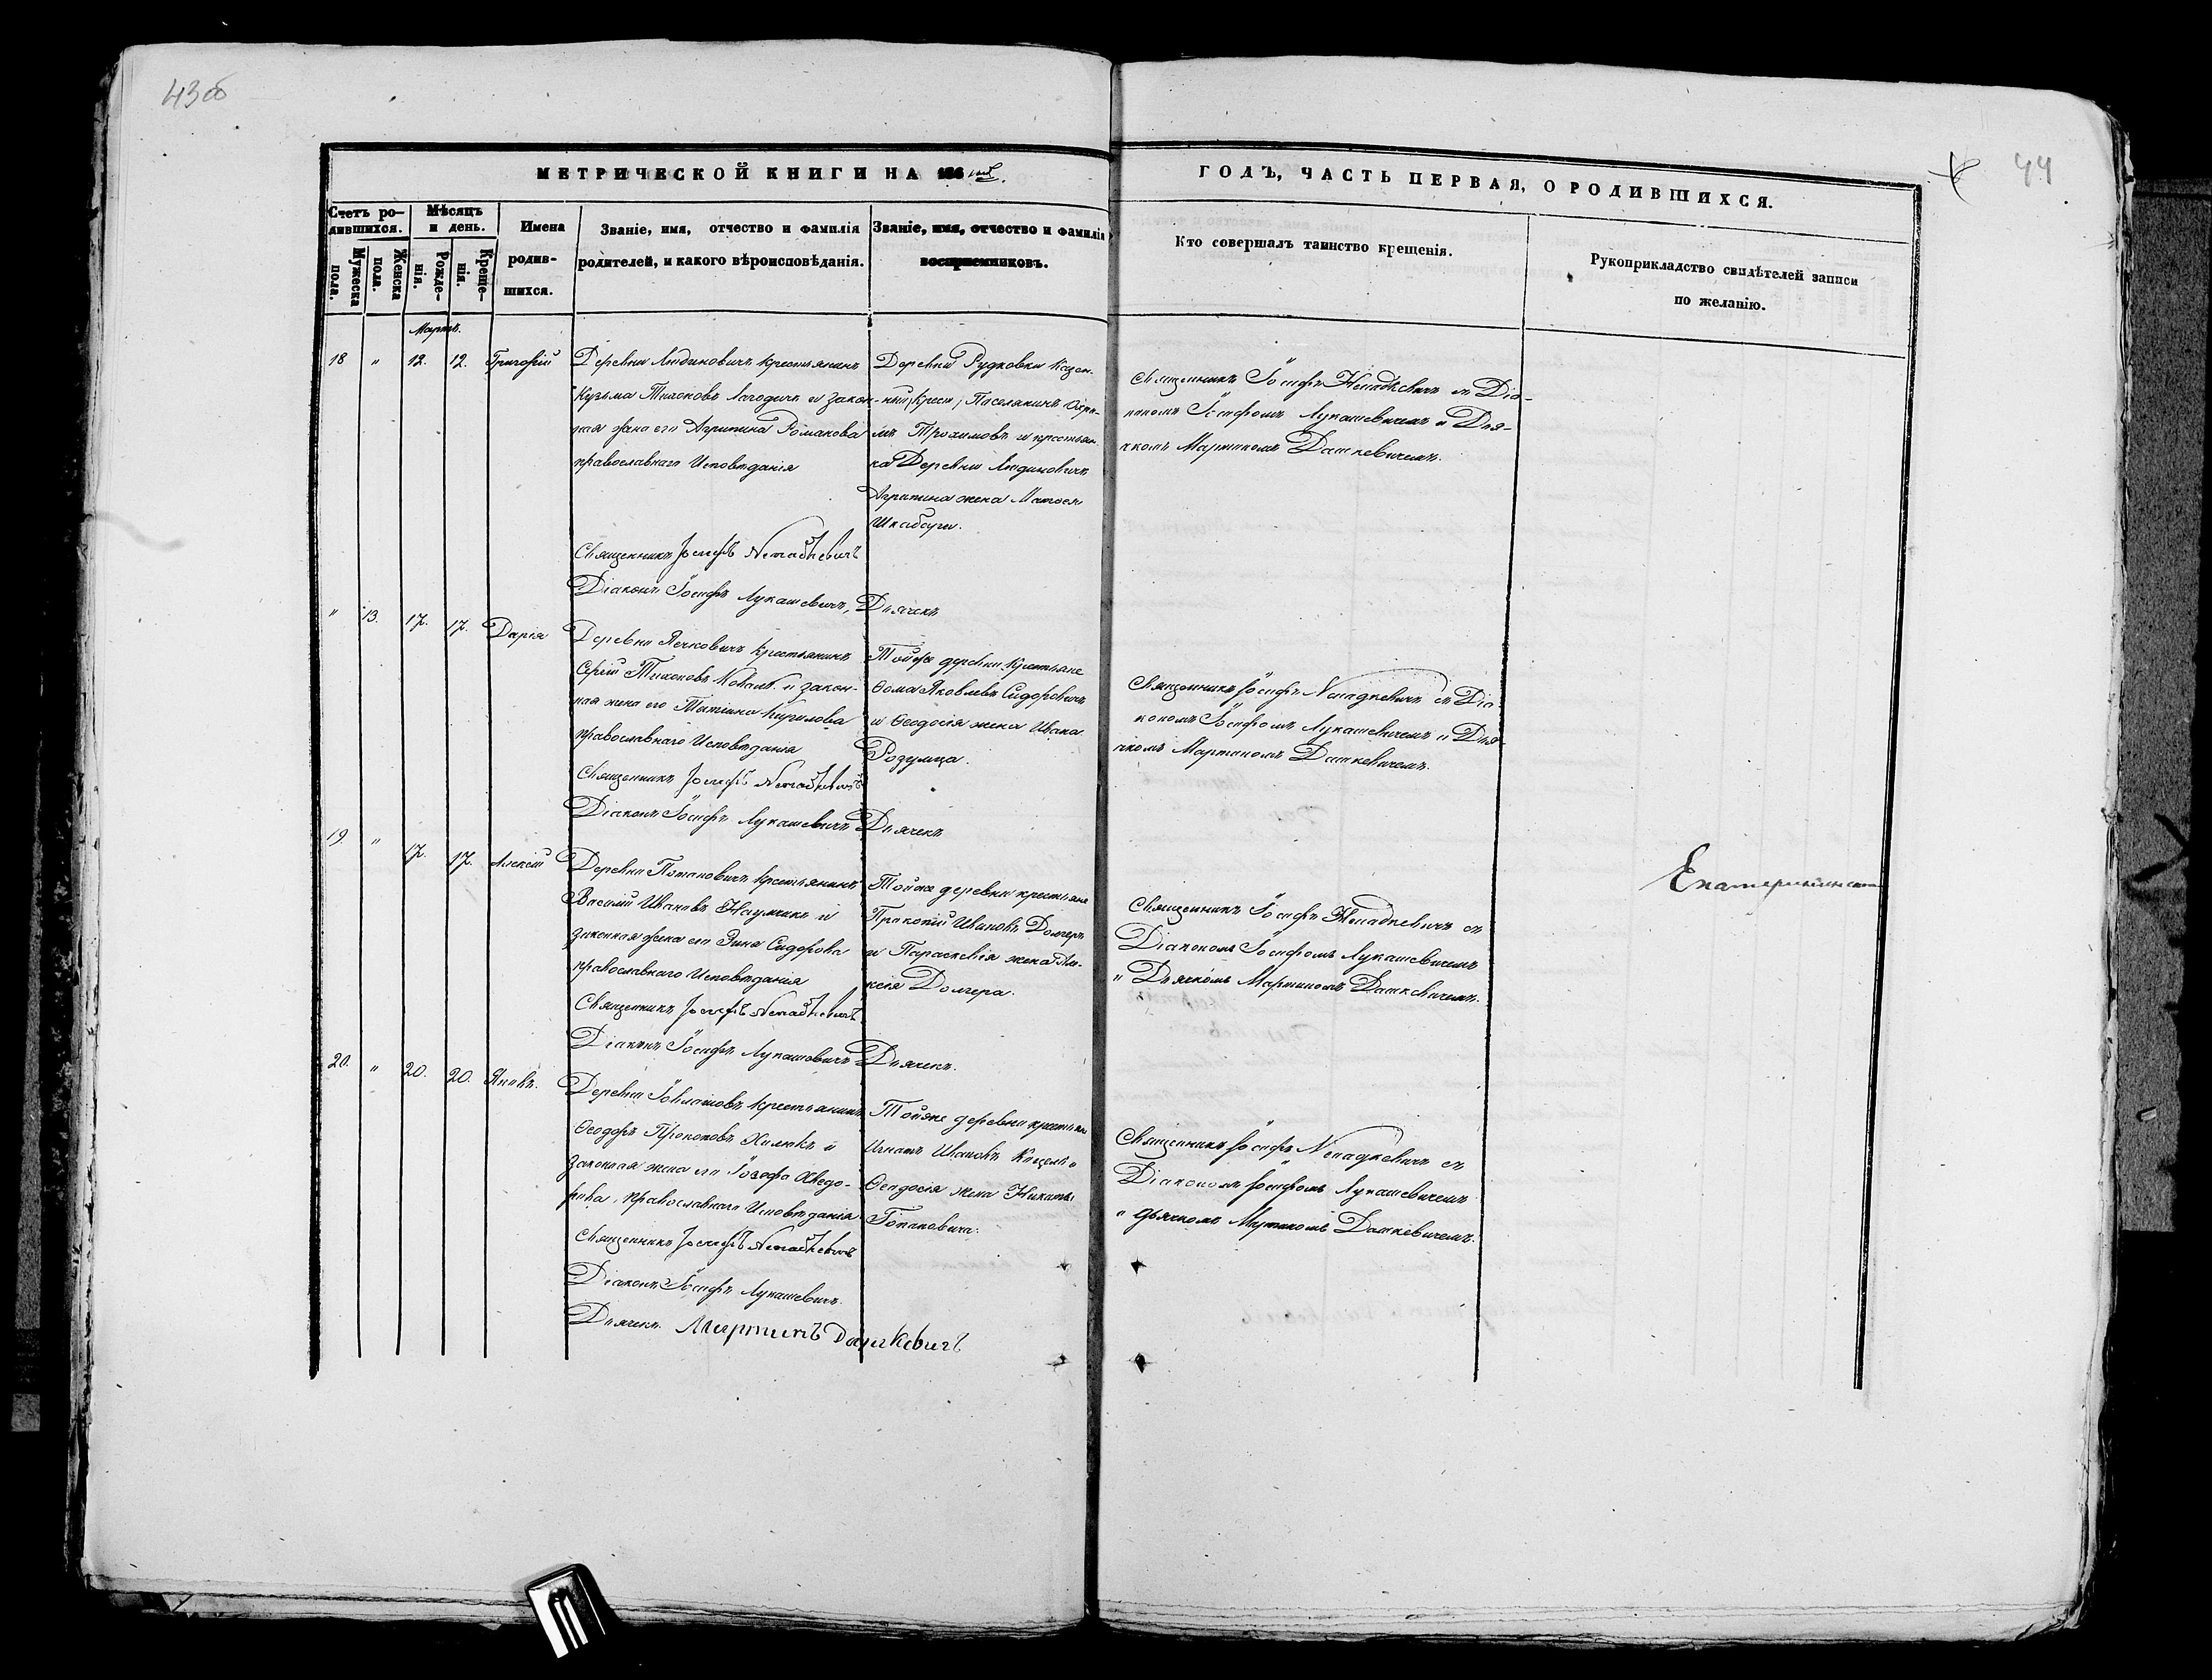 43 об
МЕТРИЧЕСКОЙ КНИГИ НА 186
Счетъ ро-
дившихся.
Мужеска
пола.
Женска
пола.
Мѣсяцъ
и день.
Рожде-
нія.
Креще-
нія.
Имена
родив-
шихся.
Званіе, имя, отчество и фамилія
родителей, и какого вѣроисповѣданія.
Званіе, имя, отчество и фамилія
воспріемниковъ.
Мартъ.
18 " 12. 12. Григорій
Деревни Людиновичъ крестьянинъ
Кузьма Тихоновъ Лагодичъ и закон-
ная жена его Агрипина Романова
православнаго Исповѣданія
Деревни Рудковки Казен-
ный крест. Поселянинъ
Трохимовъ и крестьян-
ка Деревни Людиновичъ
Агрипина жена Матвея
Священникъ Іосифъ Ненадкевичъ
Діаконъ Іосифъ Лукашевичъ, Дьячекъ
" 13. 17. 17. Дарія
Деревни Ячковичъ крестьянинъ
Сергій Тихоновъ Коваль и закон-
ная жена его Татіана Кирилова
православнаго Исповѣданія
Тойже деревни крестьяне
Ѳома Яковлевъ Сидоровичъ
и Ѳеодосія жена Ивана
Розумца.
Священникъ Іосифъ Ненадкевичъ
Діаконъ Іосифъ Лукашевичъ Дьячекъ
19. " 17. 17. Алексій
Деревни Потаповичъ крестьянинъ
Василій Ивановъ Наумчикъ и
законная жена его Сидорова
православнаго Исповѣданія
Тойже деревни крестьяне
Прокопій Ивановъ Долгеръ
и Параскевія жена Але-
ксія Долгера.
Священникъ Іосифъ Ненадкевичъ
Діаконъ Іосифъ Лукашевичъ Дьячекъ.
20. " 20. 20. Яковъ.
Деревни крестьянинъ
Ѳеодоръ Прокоповъ Хилюкъ и
законная жена его Іозефа Ѳведо-
рова, православнаго Исповѣданія
Тойже деревни крестьяне
Игнатъ Ивановъ и
Ѳеодосія жена Никиты
Священникъ Іосифъ Ненадкевичъ
Діаконъ Іосифъ Лукашевичъ.
Дьячекъ Мартинъ Дашкевичъ
44
ГОДЪ, ЧАСТЬ ПЕРВАЯ, О РОДИВШИХСЯ.
Кто совершалъ таинство крещенія.
Рукоприкладство свидѣтелей записи
по желанію.
Священникъ Іосифъ Ненадкевичъ съ Діа-
кономъ Іосифомъ Лукашевичемъ и Дья-
чкомъ Мартиномъ Дашкевичемъ.
Священникъ Іосифъ Ненадкевичъ съ Діа-
кономъ Іосифомъ Лукашевичемъ и Дья-
чкомъ Мартиномъ Дашкевичемъ.
Священникъ Іосифъ Ненадкевичъ съ
Діакономъ Іосифомъ Лукашевичемъ
и Дьячкомъ Мартиномъ Дашкевичемъ.
Священникъ Іосифъ Ненадкевичъ съ
Діакономъ Іосифомъ Лукашевичемъ
и дьячкомъ Мартиномъ Дашкевичемъ.